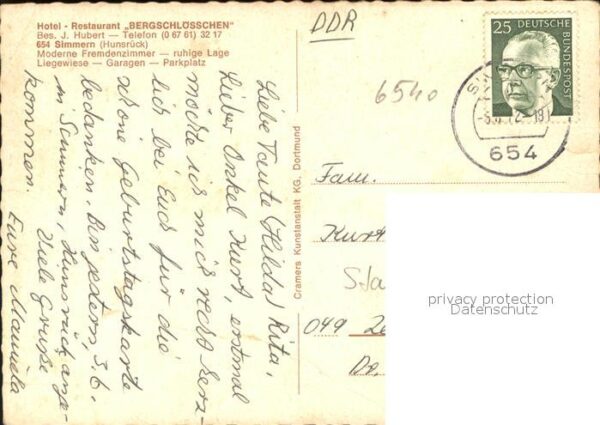 Hotel - Restaurant „BERGSCHLÖSSCHEN"
Bes. J. Hubert — Telefon (0 67 61) 32 17
654 Simmern (Hunsrück)
Moderne Fremdenzimmer — ruhige Lage
Liegewiese — Garagen — Parkplatz
DDR
25 DEUTSCHE
BUNDESPOST
654
6540
Liebe Tante Hilda, Rita,
lieber Onkel Kurt, erstmal
möchte ich mich recht herz-
lich bei Euch für die
schöne Geburtstagskarte
bedanken. Bin gestern, 3.6.
in Simmern, Hunsrück ange-
kommen. Viele Grüße
Eure Manuela
Cramers Kunstanstalt KG. Dortmund
Fam.
Kurt
049
privacy protection
Datenschutz